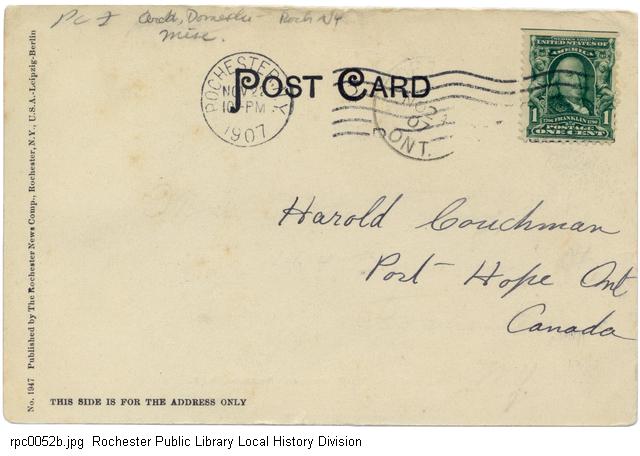 PC I Cards, Domestic - Roch NY
Misc.
POST CARD
ROCHESTER, N.Y.
NOV 22
10 - PM
1907
NO 24
07
ONT.
SERIES 1902
UNITED STATES OF
AMERICA
1 1706 FRANKLIN 1790 1
POSTAGE
ONE CENT
Harold Couchman
Port Hope Ont
Canada
No. 1947 Published by The Rochester News Comp., Rochester, N.Y., U.S.A.-Leipzig-Berlin
THIS SIDE IS FOR THE ADDRESS ONLY
rpc0052b.jpg Rochester Public Library Local History Division